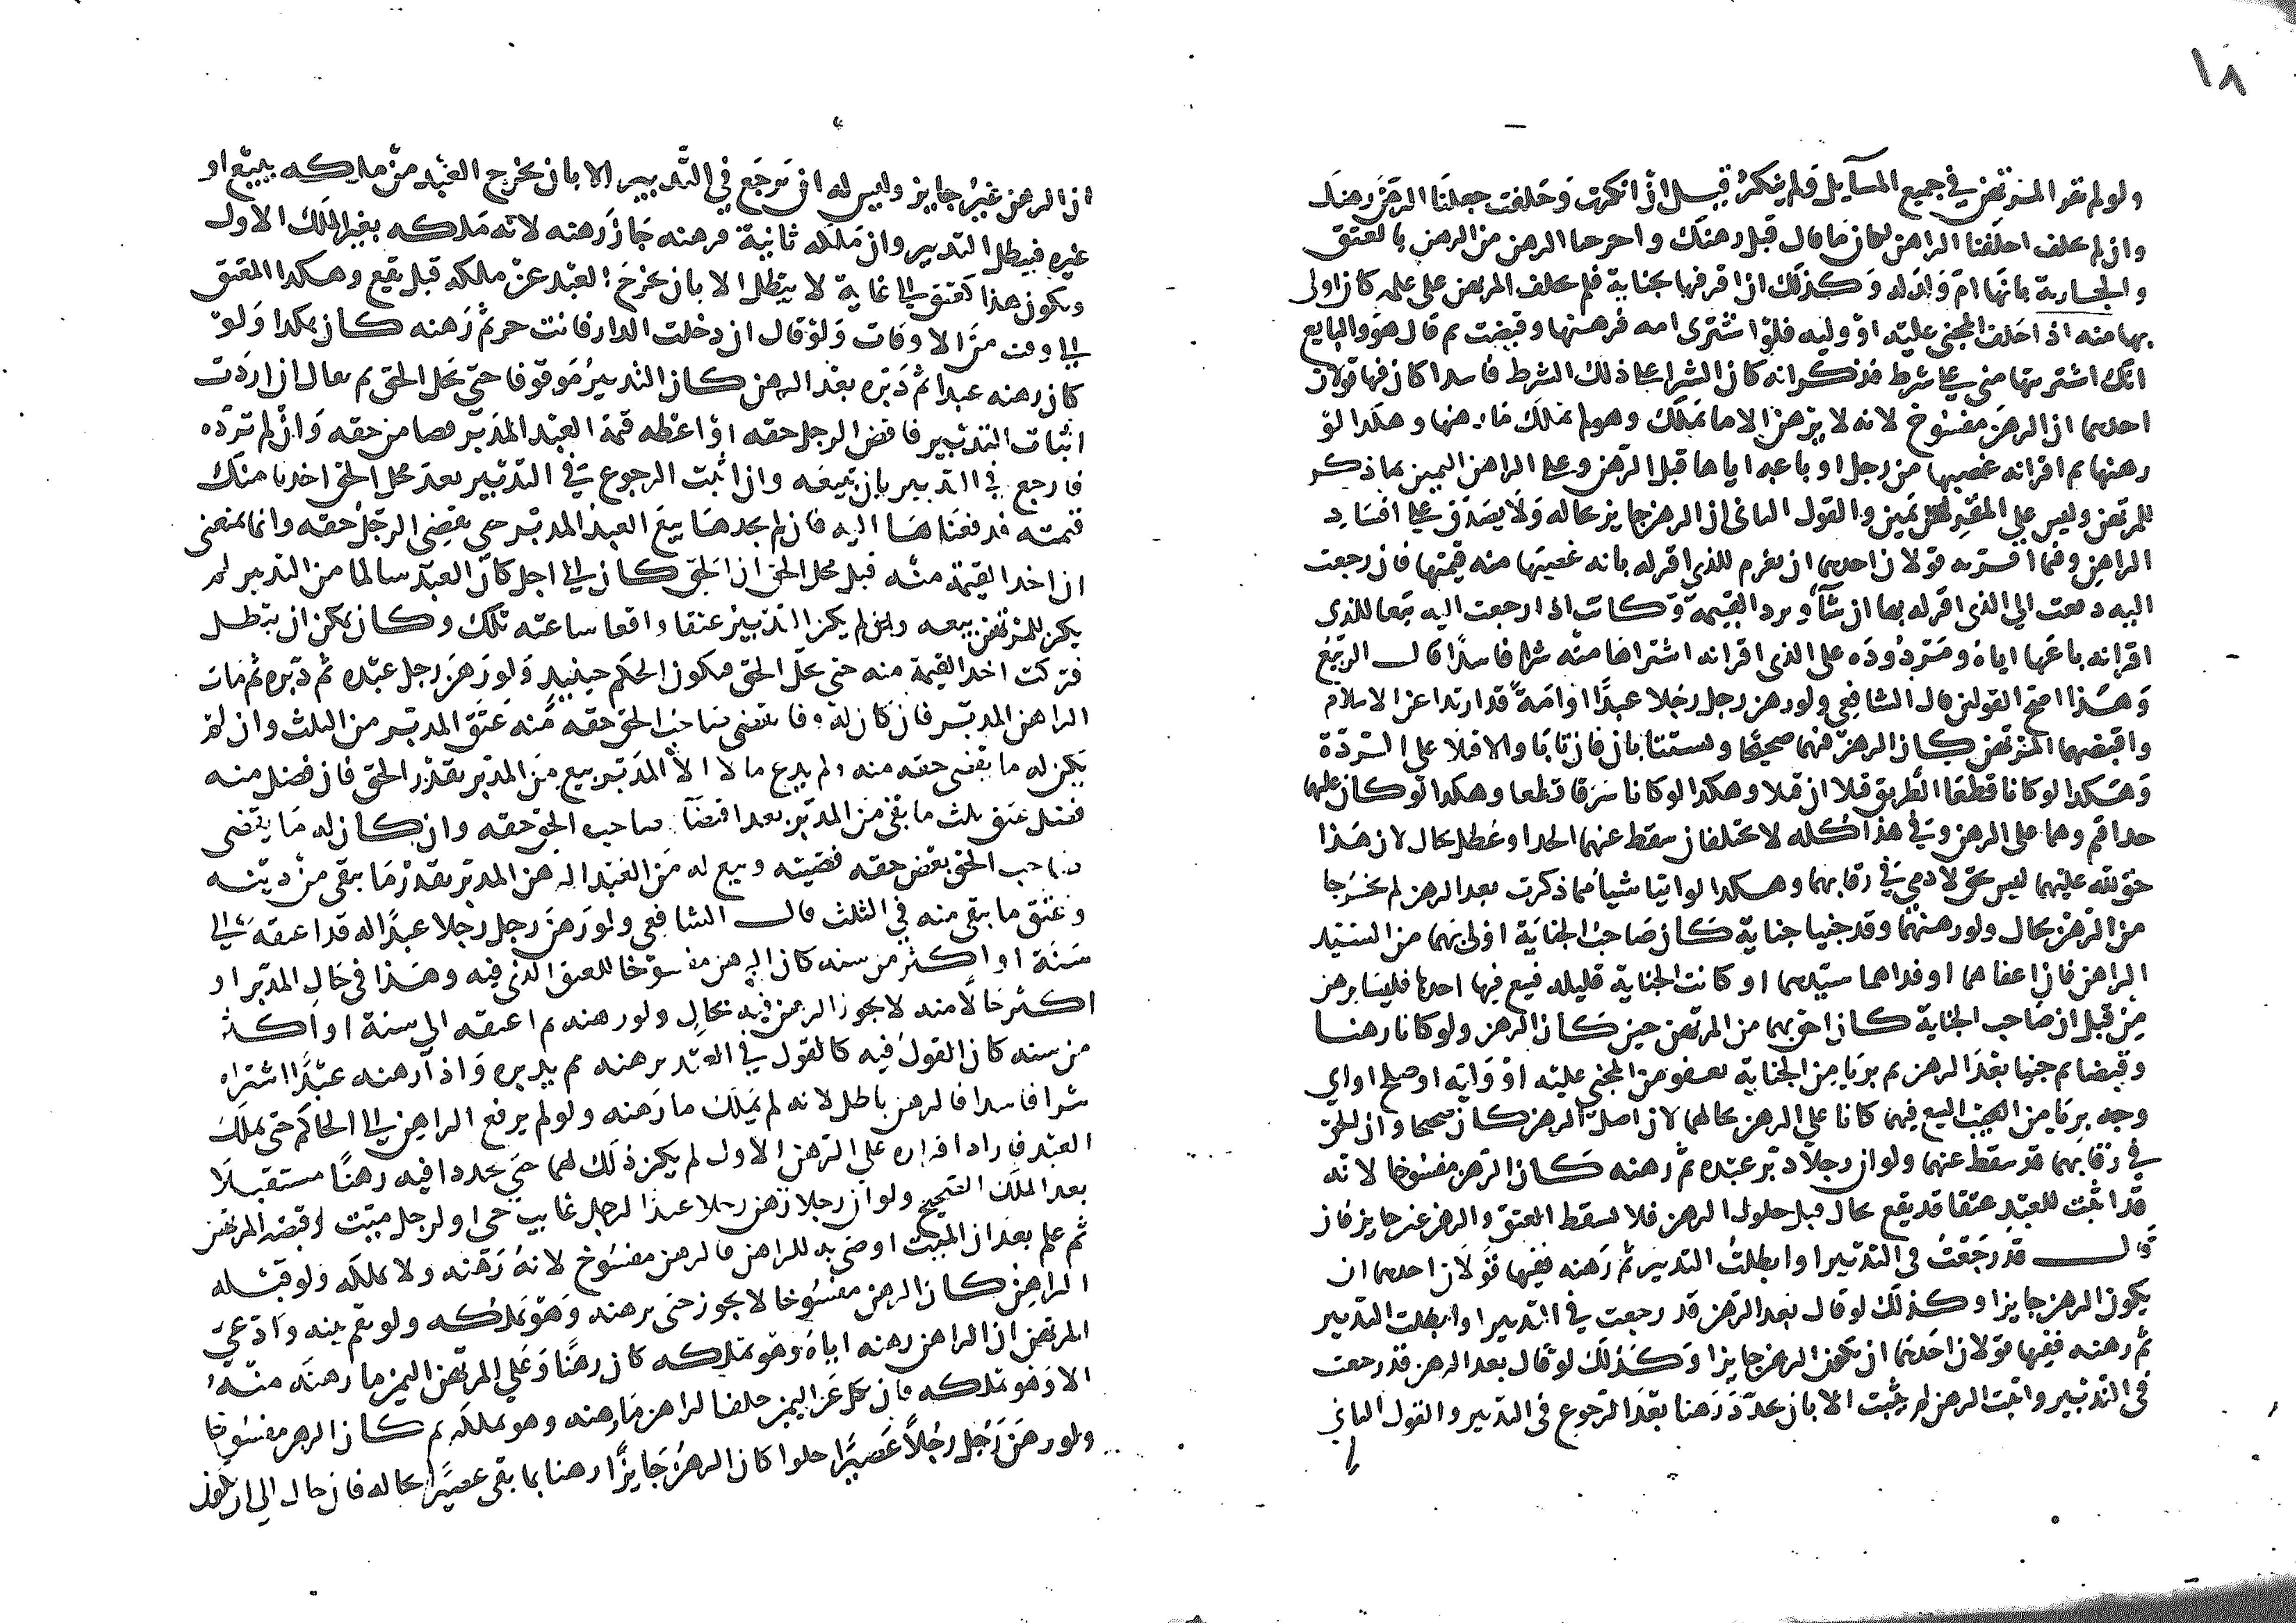 ١٨
ولو لم يقر المرتهن في جميع المسآيل ولم ينكر قيل ان انكرت وحلفت جعلنا الرهن رهنك
وان لم تحلف احلفنا الراهن لكان ما قال قبل رهنك واخرجنا الرهن من الرهن بالعتق
والجارية بانها ام ولد له وكذلك ان اقر فيها بجناية فلم يحلف المرتهن على علمه كان اولى
بها منه اذا حلف المجني عليه او وليه فلو اشترى امه فرهنها وقبضت ثم قال هو او البايع
انك اشتريتها مني على شرط فذكر انه كان الشرا على ذلك الشرط فاسدا كان فيها قولان
احدهما ان الرهن مفسوخ لانه لا يرهن الا ما يملك وهو لم يملك ما رهنها وهكذا لو
رهنها ثم اقر انه غصبها من رجل او باعه اياها قبل الرهن وعلى الراهن اليمين بما ذكر
للمرتهن وليس على المقر له يمين والقول الثاني ان الرهن جايز بحاله ولا يصدق على افساد
الراهن وفيما اقر به قولان احدهما ان يغرم للذي اقر له بانه غصبها منه قيمتها فان رجعت
اليه دفعت الى الذي اقر له بها ان شآ ويرد القيمة وكانت اذا رجعت اليه بيعا للذي
اقر انه باعها اياه ومردودة على الذي اقر انه اشتراها منه شرا فاسدا قال الربيع
وهذا اصح القولين قال الشافعي ولو رهن رجل رجلا عبدا او امة قد ارتدا عن الاسلام
واقبضهما المرتهن كان الرهن فيهما صحيحا ويستتابان فان تابا والا قتلا على الردة
وهكذا لو كانا قطعا الطريق قتلا ان قتلا وهكذا لو كانا سرقا قطعا وهكذا لو كان عليهما
حد اقيم وهما على الرهن وفي هذا كله لا يختلفان سقط عنهما الحد او عطل بحال لان هذا
حق لله عليهما ليس بحق لادمي في رقابهما وهكذا لو اتيا شيا مما ذكرت بعد الرهن لم يخرجا
من الرهن بحال ولو رهنهما وقد جنيا جناية كان صاحب الجناية اولى بهما من السيد
الراهن فان اعفاهما او فداهما سيدهما او كانت الجناية قليله فبيع فيها احدهما فليسا برهن
من قبل ان صاحب الجناية كان احق بهما من المرتهن حين كان الرهن ولو كانا رهنا
وقبضا ثم جنيا بعد الرهن ثم بريا من الجناية بعفو من المجني عليه او وليه او صلح او اي
وجه بريا من البيع فيهما كانا على الرهن بحالهما لان اصل الرهن كان صحيحا وان الحق
في رقابهما قد سقط عنهما ولو ان رجلا دبر عبده ثم رهنه كان الرهن مفسوخا لانه
قد اثبت للعبد عتقا قد يقع بحال قبل حلول الرهن فلا يسقط العتق والرهن غير جايز فان
قال قد رجعت في التدبير او ابطلت التدبير ثم رهنه ففيها قولان احدهما ان
يكون الرهن جايزا وكذلك لو قال بعد الرهن قد رجعت في التدبير او ابطلت التدبير
ثم رهنه ففيها قولان احدهما ان يكون الرهن جايزا وكذلك لو قال بعد الرهن قد رجعت
في التدبير واثبت الرهن لم يثبت الا بان يجدد رهنا بعد الرجوع في التدبير والقول الثاني
ان الرهن غير جايز وليس له ان يرجع في التدبير الا بان يخرج العبد من ملكه ببيع او
غيره فيبطل التدبير وان ملكه ثانية فرهنه جاز رهنه لانه ملكه بغير الملك الاول
ويكون هذا كعتق الى غاية لا يبطل الا بان يخرج العبد عن ملكه قبل يقع وهكذا المعتق
الى وقت من الاوقات ولو قال ان دخلت الدار فانت حر ثم رهنه كان هكذا ولو
كان رهنه عبدا ثم دبره بعد الرهن كان التدبير موقوفا حتى يحل الحق ثم يقال ان اردت
اثبات التدبير فاقض الرجل حقه او اعطه قيمة العبد المدبر قصا من حقه وان لم ترده
فارجع في التدبير بان تبيعه وان اثبت الرجوع في التدبير بعد محل الحق اخذنا منك
قيمته فدفعناها اليه فان لم نجدها بيع العبد المدبر حتى يقضى الرجل حقه وانما يمنعني
ان اخذ القيمة منه قبل محل الحق ان الحق كان الى اجل كان العبد سالما من التدبير لم
يكن للمرتهن بيعه وان لم يكن التدبير عتقا واقعا ساعته تلك وكان يمكن ان يبطل
فتركت اخذ القيمة منه حتى يحل الحق فيكون الحكم حينيذ ولو رهن رجل عبده ثم دبره ثم مات
الراهن المدبر فان كان له وفا يقضى صاحب الحق حقه منه عتق المدبر من الثلث وان لم
يكن له ما يقضى حقه منه ولم يدع مالا الا المدبر بيع من المدبر بقدر الحق فان فضل منه
فضل عتق ثلث ما بقي من المدبر بعد اقتضآ صاحب الحق حقه وان كان له ما يقضى
صاحب الحق بعض حقه قضيته وبيع له من العبد الرهن المدبر بقدر ما بقى من دينه
وعتق ما بقي منه في الثلث قال الشافعي ولو رهن رجل رجلا عبدا له قد اعتقه الى
سنة او اكثر من سنه كان الرهن مفسوخا للعتق الذي فيه وهذا في حال المدبر او
اكثر حالا منه لا يجوز الرهن فيه بحال ولو رهنه ثم اعتقه الى سنة او اكثر
من سنه كان القول فيه كالقول في العبد يرهنه ثم يدبره واذا رهنه عبدا اشتراه
شرا فاسدا فالرهن باطل لانه لم يملك ما رهنه ولو لم يرفع الراهن الى الحاكم حتى يملك
العبد فارادا اقراره على الرهن الاول لم يكن ذلك لهما حتى يجددا فيه رهنا مستقبلا
بعد الملك الصحيح ولو ان رجلا رهن رجلا عبدا لرجل غايب حي او لرجل ميت وقبضه المرتهن
ثم علم بعد ان الميت اوصى به للراهن فالرهن مفسوخ لانه رهنه ولا يملكه ولو قبله
الراهن كان الرهن مفسوخا لا يجوز حتى يرهنه وهو يملكه ولو لم تقم بينه وادعى
المرتهن ان الراهن رهنه اياه وهو يملكه كان رهنا وعلى المرتهن اليمين ما رهنه منه
الا وهو يملكه فان نكل عن اليمين حلف الراهن ما رهنه وهو يملكه ثم كان الرهن مفسوخا
ولو رهن رجل رجلا عصيرا حلوا كان الرهن جايزا رهنا بما بقى عصيرا بحاله فان حال الى ان يكون